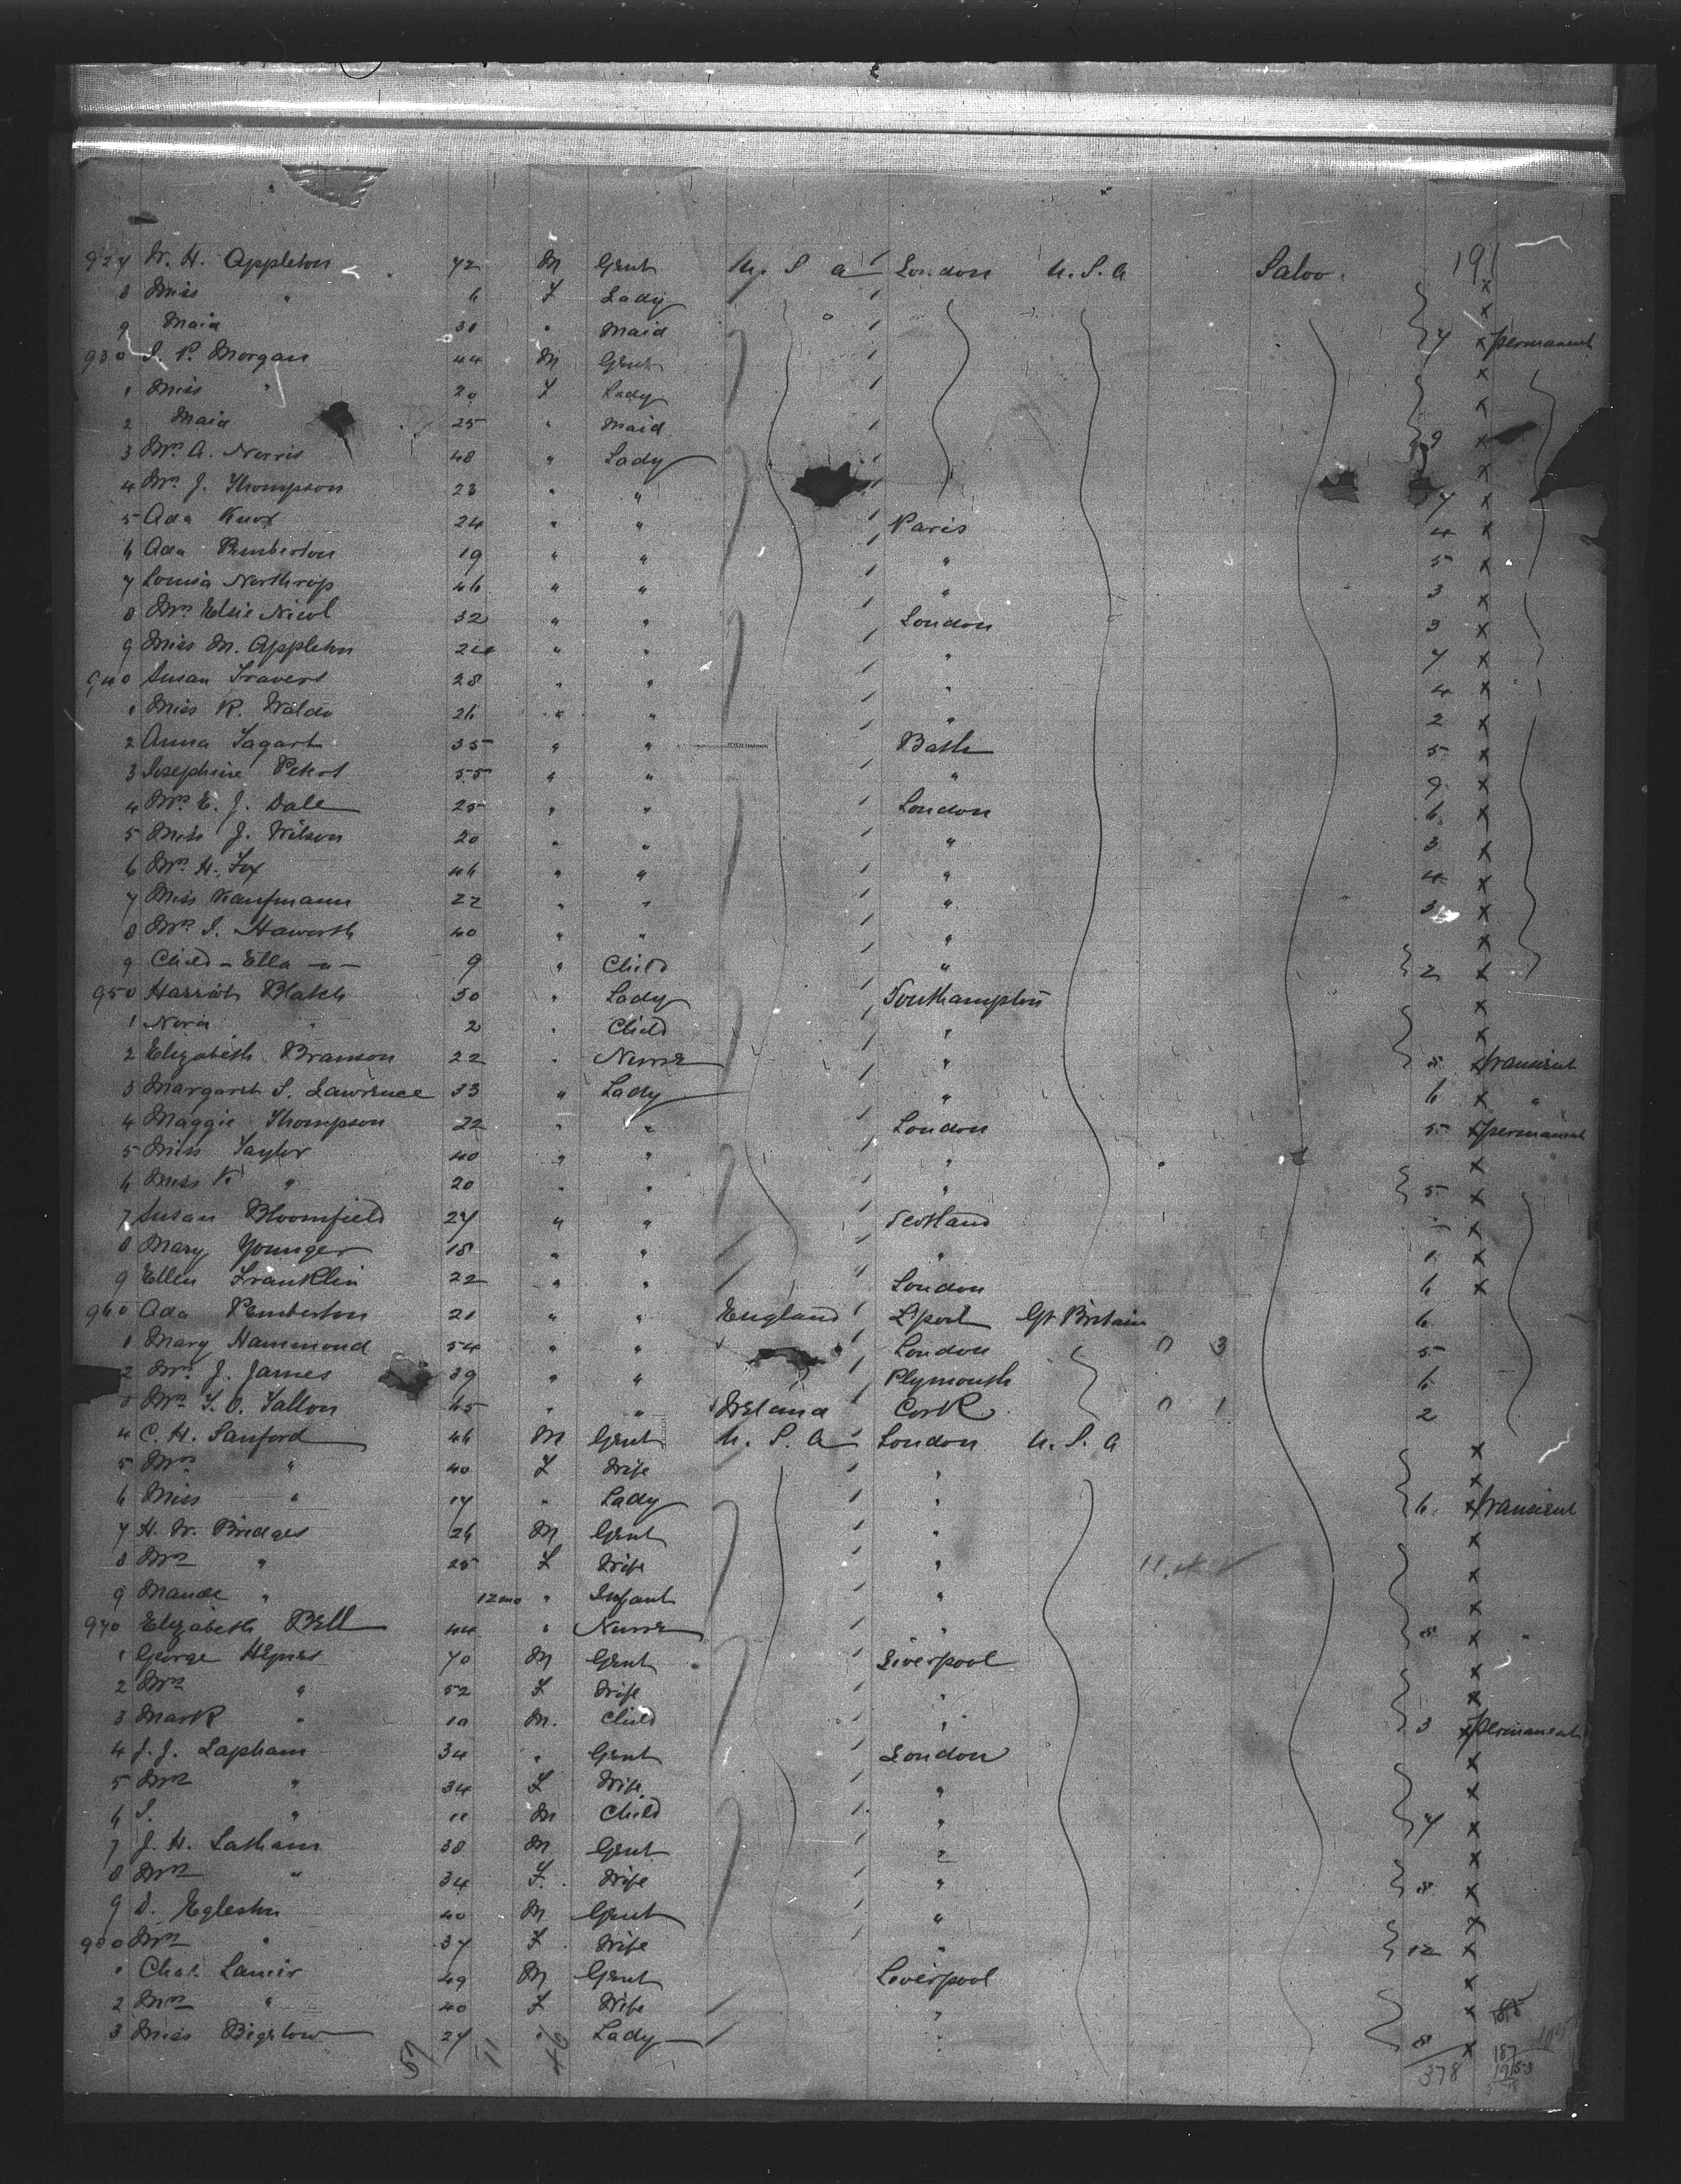 927 W. H. Appleton 72 M Gent U. S a London U. S. a Saloo 191
8 Miss " 6 F Lady
9 Maid 30 " Maid 7 x permanent
930 J. P. Morgan 44 M Gent x
1 Miss " 20 F Lady x
2 Maid 25 " Maid
3 Mrs A. Norris 48 " Lady 9 x
4 Mrs J. Thompson 23 " " 7 x
5 Ada Knox 24 " " Paris 4 x
6 Ada Pemberton 19 " " " 5 x
7 Louisa Northrop 46 " " " 3
8 Mrs Elsie Nicol 32 " " London 3 x
9 Miss M. Appleton " " " 7 x
940 Susan Travers 28 " " " 4 x
1 Miss R. Waldo 26 " " " 2 x
2 Anna Tagart 35 " " Bath 5 x
3 Josephine Peters 55 " " " 9 x
4 Mrs E. J. Dale 25 " " London 6 x
5 Miss J. Wilson 20 " " " 3 x
6 Mrs H. Fox 46 " " " 4 x
7 Miss Kaufmann 22 " " " 3 x
8 Mrs S. Haworth 40 " " " x
9 Child - Ella - " - 9 " Child " 2 x
950 Harriet Blatch 30 " Lady Southampton x
1 Nora " 2 " Child " x
2 Elizabeth Branson 22 " Nurse " 8 x transient
3 Margaret S. Lawrence 33 " Lady " 6 x "
4 Maggie Thompson 22 " " London 5 x permanent
5 Miss Taylor 40 " " " x
6 Miss K. " 20 " " " 5 x
7 Susan Bloomfield 27 " " Scotland x
8 Mary Younger 18 " " " 1 x
9 Ellen Franklin 22 " " London 6 x
960 Ada Pemberton 21 " " England L'pool Gt Britain 6
1 Mary Hammond 54 " " London 3 5
2 Mrs J. James 39 " " Plymouth 6
3 Mrs T. O. Tallon 65 " " Ireland Cork 1 2
4 C. H. Sanford 46 M Gent U. S. a London U. S. a x
5 Mrs " 40 F Wife " x
6 Miss " 17 " Lady " 6 x transient
7 H. W. Bridges 26 M Gent " x
8 Mrs " 25 F Wife " x
9 Maude " 12 mo " Infant " x
970 Elizabeth Bell 44 " Nurse " 8 x "
1 George Hynes 70 M Gent Liverpool x
2 Mrs " 52 F Wife " x
3 Mark " 10 M. Child " 3 x permanent
4 J. J. Lapham 34 " Gent London x
5 Mrs " 34 F Wife " x
6 S. " 11 M Child " 7 x
7 J. H. Latham 38 M Gent " x
8 Mrs " 34 F. Wife " 8 x
9 D. Egleston 40 M Gent " x
980 Mrs " 37 F Wife " 12 x
1 Chas. Lanier 49 M Gent Liverpool x
2 Mrs " 40 F Wife " x
3 Miss Bigelow 27 " Lady " 8 x
57 11 46 378 187